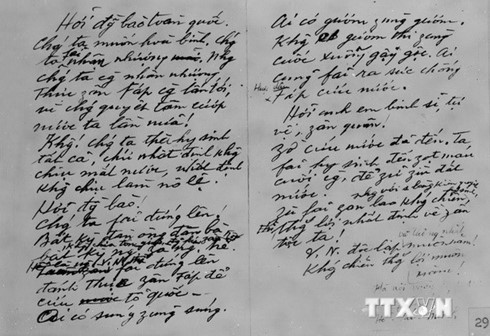 Hỡi đg̀ bào toàn quốc.
Chg' ta muốn hoà bình, chg'
ta fải nhân nhượng. Nhg
chg' ta cg̀ nhân nhượng
thực zân Fáp cg̀ lấn tới,
vì chg' quyết tâm cướp
nước ta lần nữa!
Khg! Chg' ta thà hy sinh
tất cả, chứ nhất định khg
chịu mất nước, nhất định
khg chịu làm nô lệ.
Hỡi đg̀ bào!
Chg' ta fải đứng lên!
Bất kỳ đàn ông đàn bà
bất kỳ
fải đứng lên
đánh thực zân Fáp để
cứu tổ quốc
Ai có súng zùng súng.
Ai có gươm zùng gươm.
Khg có gươm thì zùng
cuốc xuổng gậy gộc. Ai
cũng fải ra sức chống
Fáp cứu nước.
Hỡi anh em binh sĩ, tự
vệ, zân quân!
Zờ cứu nước đã đến. Ta
fải hy sinh đến zọt máu
cuối cg̀, để zữ zìn đất
nước.
Zù fải zan lao khg chiến,
thắng lợi nhất định về zân
tộc ta!
V.N. độc lập muôn năm!
Khg chiến thắng lợi muôn
năm!
TTXVN
29